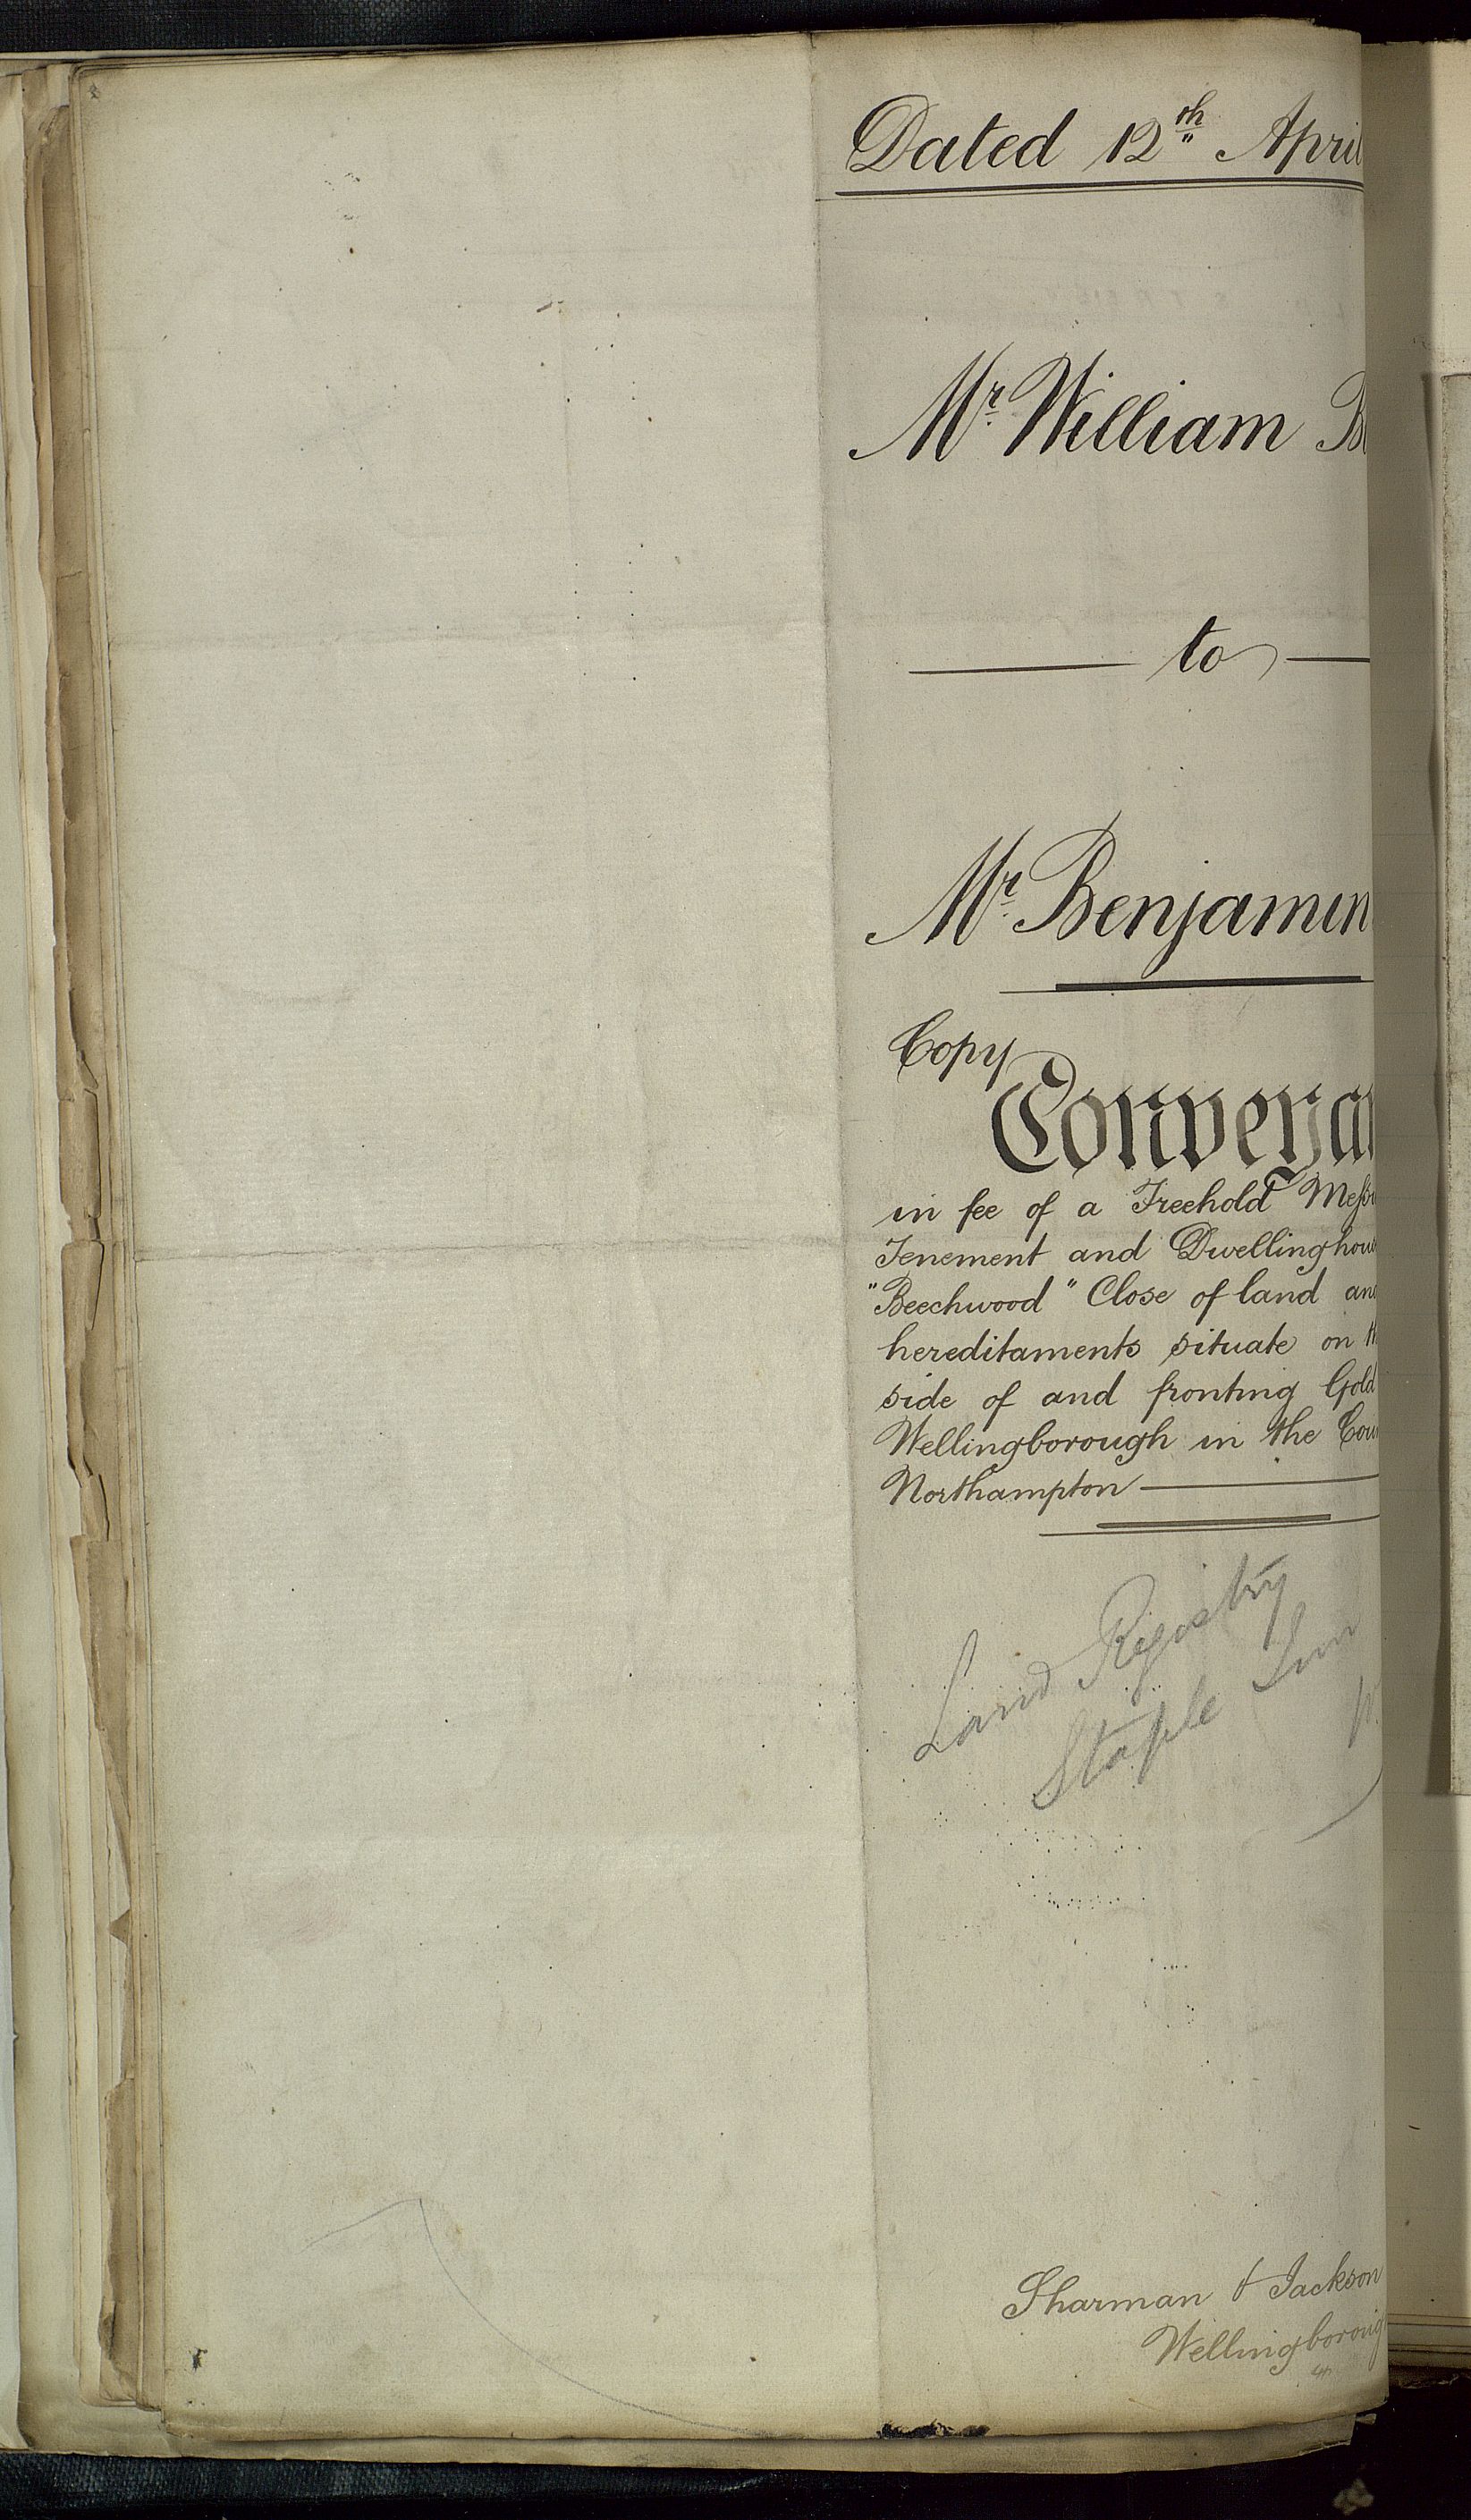 Dated 12th April
Mr William B
to
Mr Benjamin
Copy
Conveyan
in fee of a Freehold Messu
Tenement and Dwellinghous
"Beechwood" Close of land and
hereditaments situate on th
side of and fronting Gold
Wellingborough in the Coun
Northampton
Land Registry
Staple Inn
Sharman & Jackson
Wellingboroug